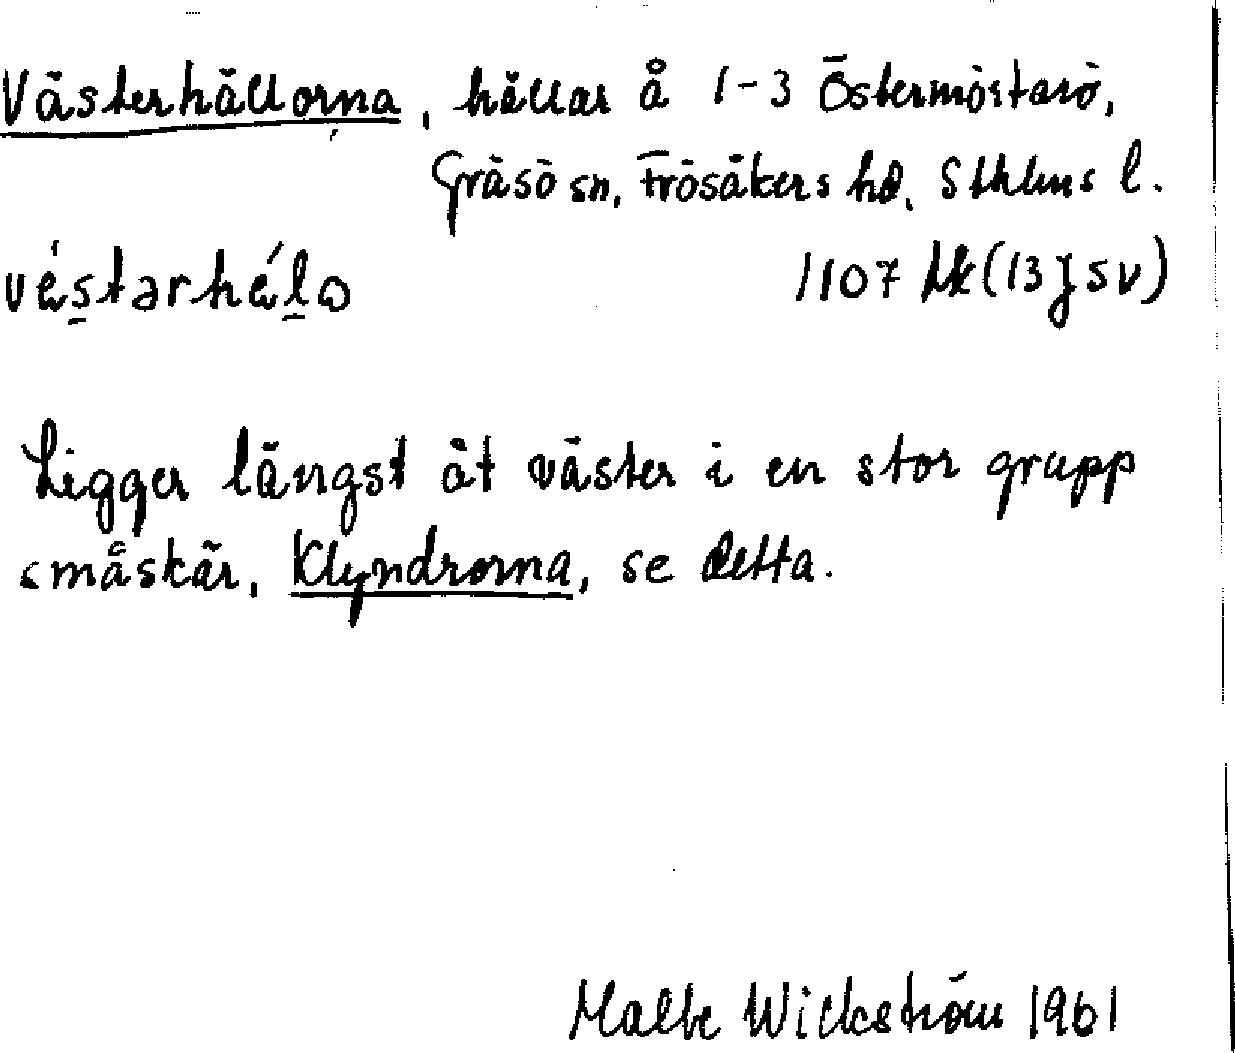 Västerhällorna, hällar å 1-3 Östermörtarö,
Gräsö sn, Frösåkers hd, Sthlms l.
véstarhéla 1107 Hk (13 J SV)
Ligger längst åt väster i en stor grupp
småskär, Klyndrorna, se detta.
Wickström 1961